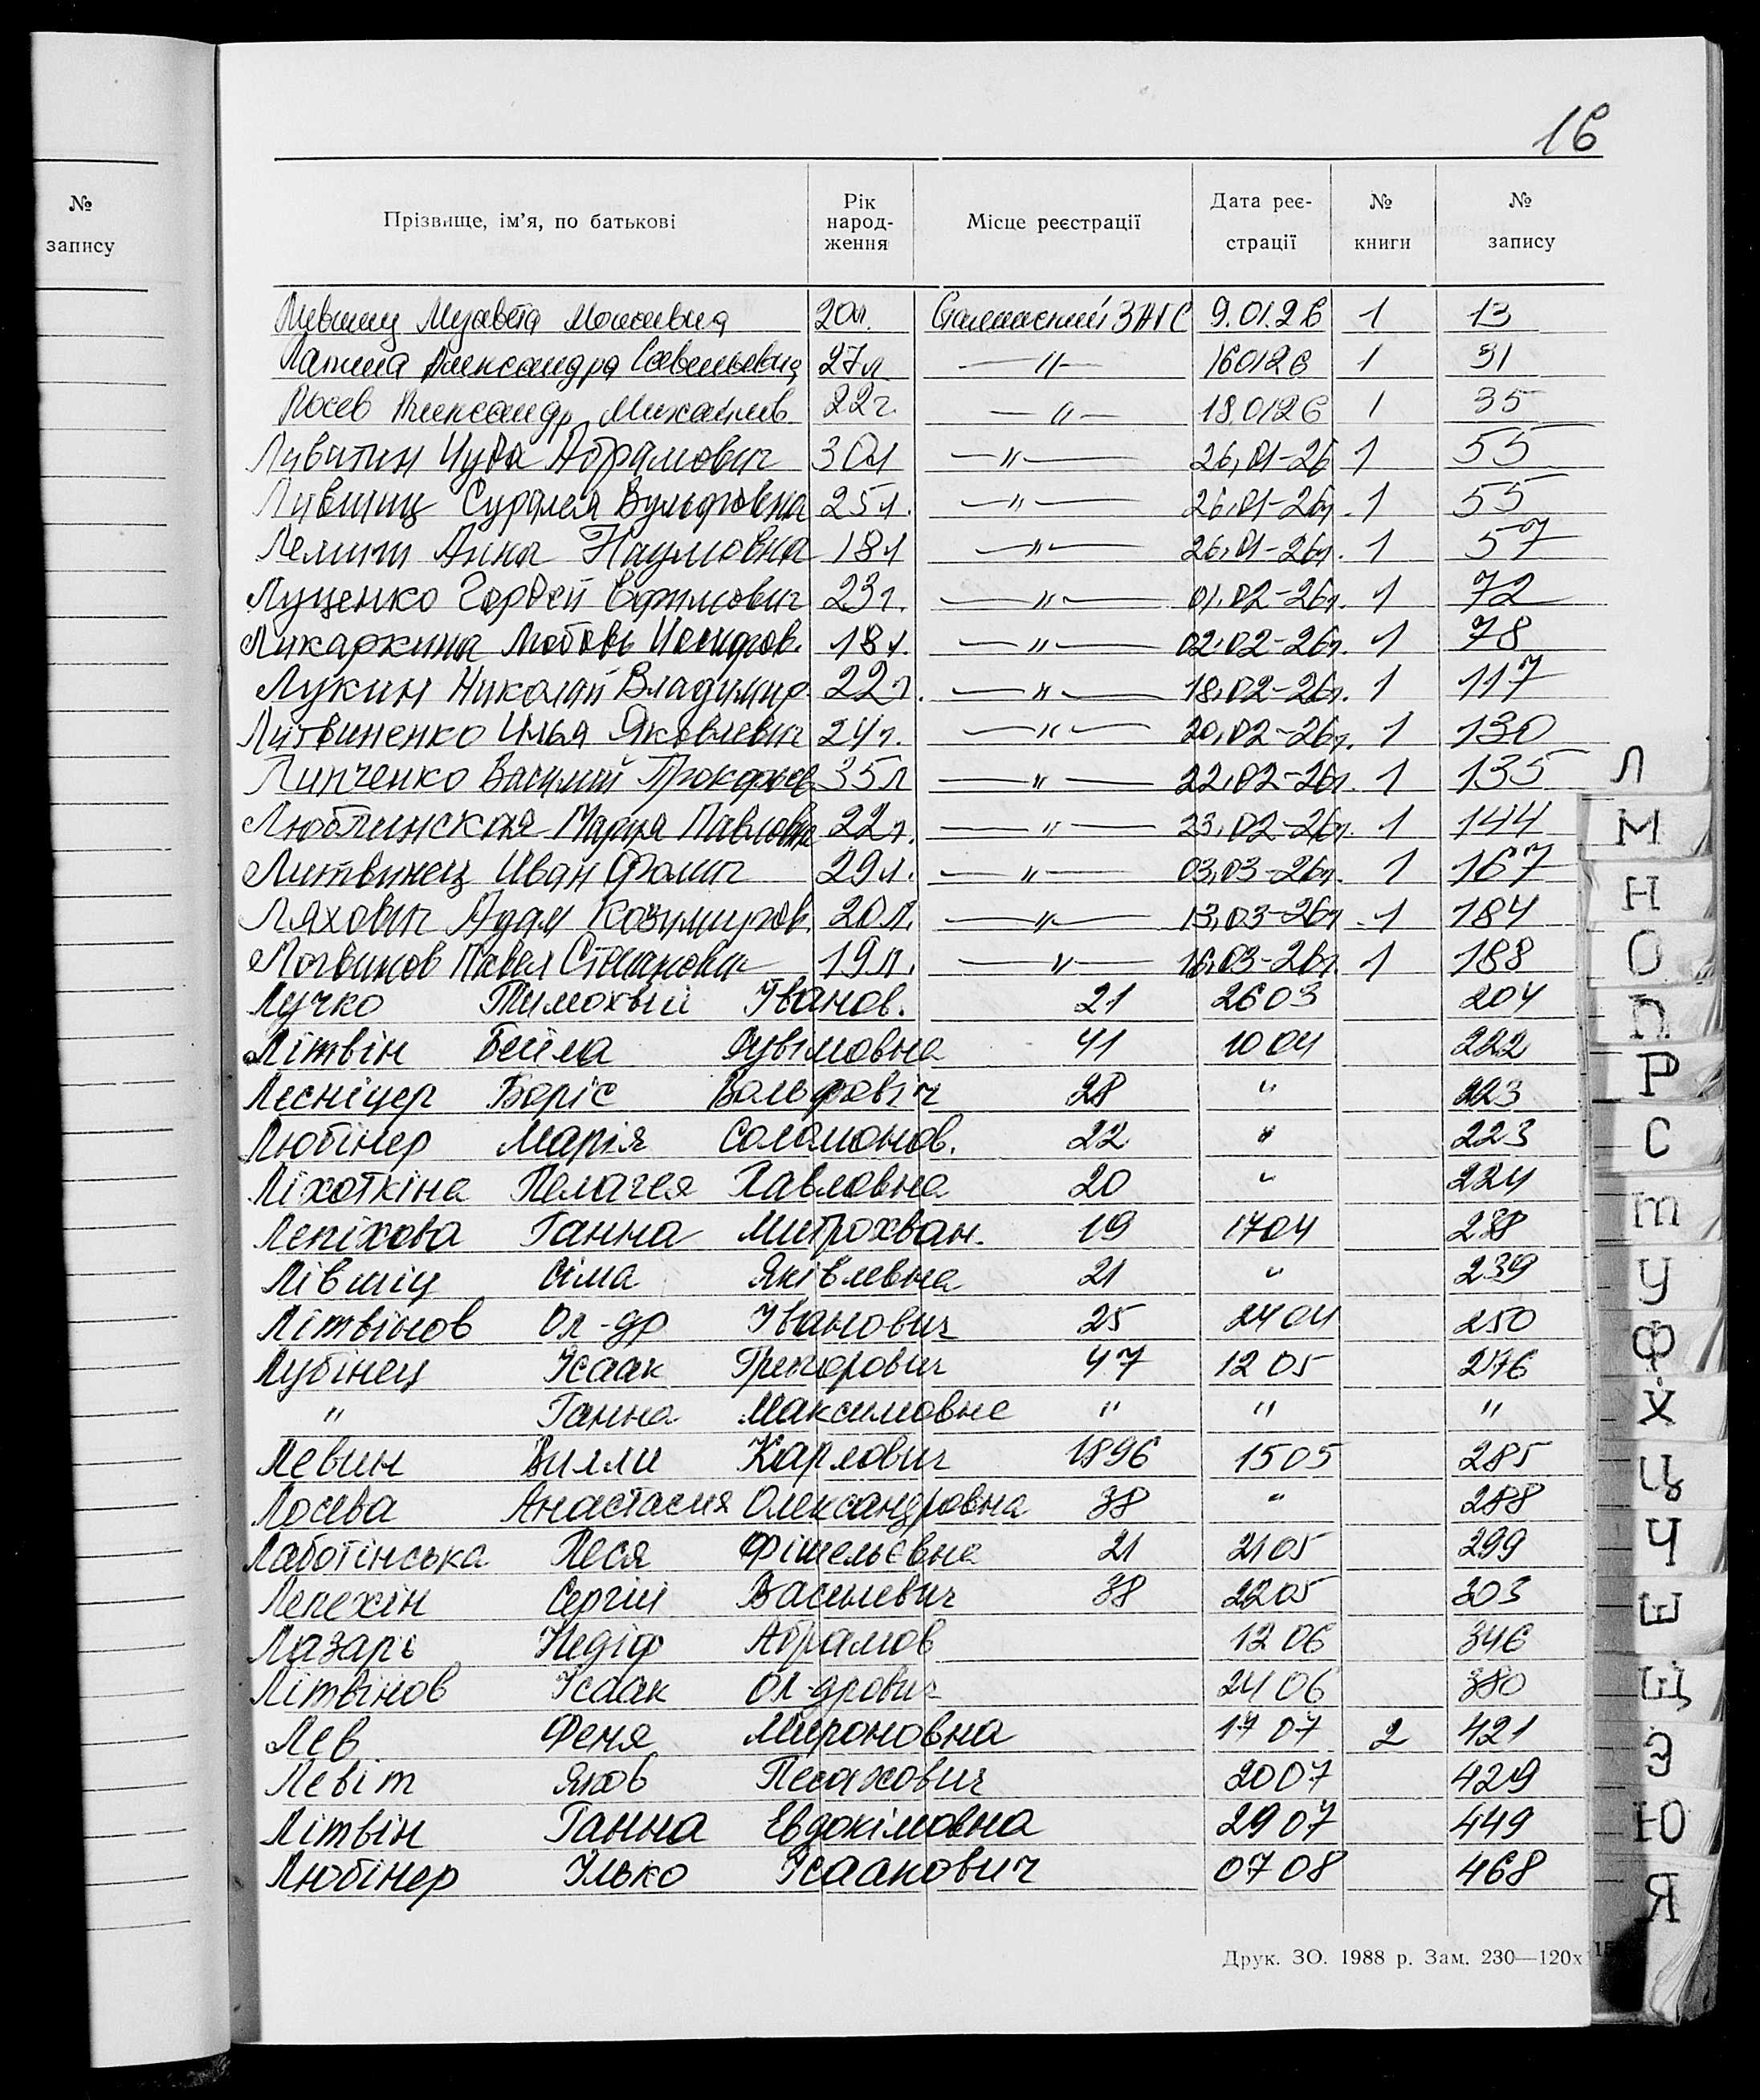 16
№ запису
Прізвище, ім'я, по батькові | Рік народ-ження | Місце реєстрації | Дата реє-страції | № книги | № запису
Лившиц Мошковна 20л. ЗАГС 9.01.26 1 13
Лапина Александра Савельевна 27л —〃— 160126 1 31
Лосев Александр Михайлов. 22г. —〃— 180126 1 35
Абрамович 30л —〃— 26,01-26 1 55
Лившиц Вульфовна 25л. —〃— 26,01-26г. 1 55
Анна Наумовна 18л —〃— 26,01-26г. 1 57
Луценко Гордей Ефимович 23г. —〃— 01.02-26г. 1 72
Ликаркина Любовь 18л. —〃— 02.02-26г. 1 78
Лукин Николай Владимир. 22г. —〃— 18.02-26г. 1 117
Литвиненко Илья Яковлевич 24г. —〃— 20,02-26г. 1 130
Липченко Василий Прокофьев. 35л —〃— 22,02-26г. 1 135
Люблинская Мария Павловна 22г. —〃— 23,02-26г. 1 144
Литвинец Иван Фомич 29л. —〃— 03,03-26г. 1 167
Ляхович Адам Казимиров. 20л. —〃— 13,03-26г. 1 184
Логвинов Павел Степанович 19л. —〃— 16.03-26г. 1 188
Лучко Тимохвій Іванов. 21 2603 204
Літвін Бейла Рувімовна 41 1004 222
Лесніцер Боріс Вольфовіч 28 〃 223
Любінер Марія Соломонов. 22 〃 223
Ліхоткіна Пелагея Павловна 20 〃 224
Лепіхова Ганна Митрохван. 19 1704 238
Лівшіц Сіма Яківлевна 21 〃 239
Літвінов Ол-др Іванович 25 2404 250
Лубінец Ісаак Грегорович 47 1205 276
〃 Ганна Максимовне 〃 〃 〃
Левин Вилли Карлович 1896 1505 285
Лосева Анастасия Олександровна 38 〃 288
Лаботінська Песя Фішельєвна 21 2105 299
Лепехін Сергій Василевич 38 2205 303
Лазарь Абрамов 1206 346
Літвінов Ісаак Ол-дрович 2406 380
Лев Феня Мироновна 1707 2 421
Левіт Яков Песахович 2007 429
Літвін Ганна Евдокімовна 2907 449
Любінер Ілько Ісаакович 0708 468
Л
М
Н
О
П
Р
С
Т
У
Ф
Х
Ц
Ч
Ш
Щ
Э
Ю
Я
Друк. ЗО. 1988 р. Зам. 230—120х